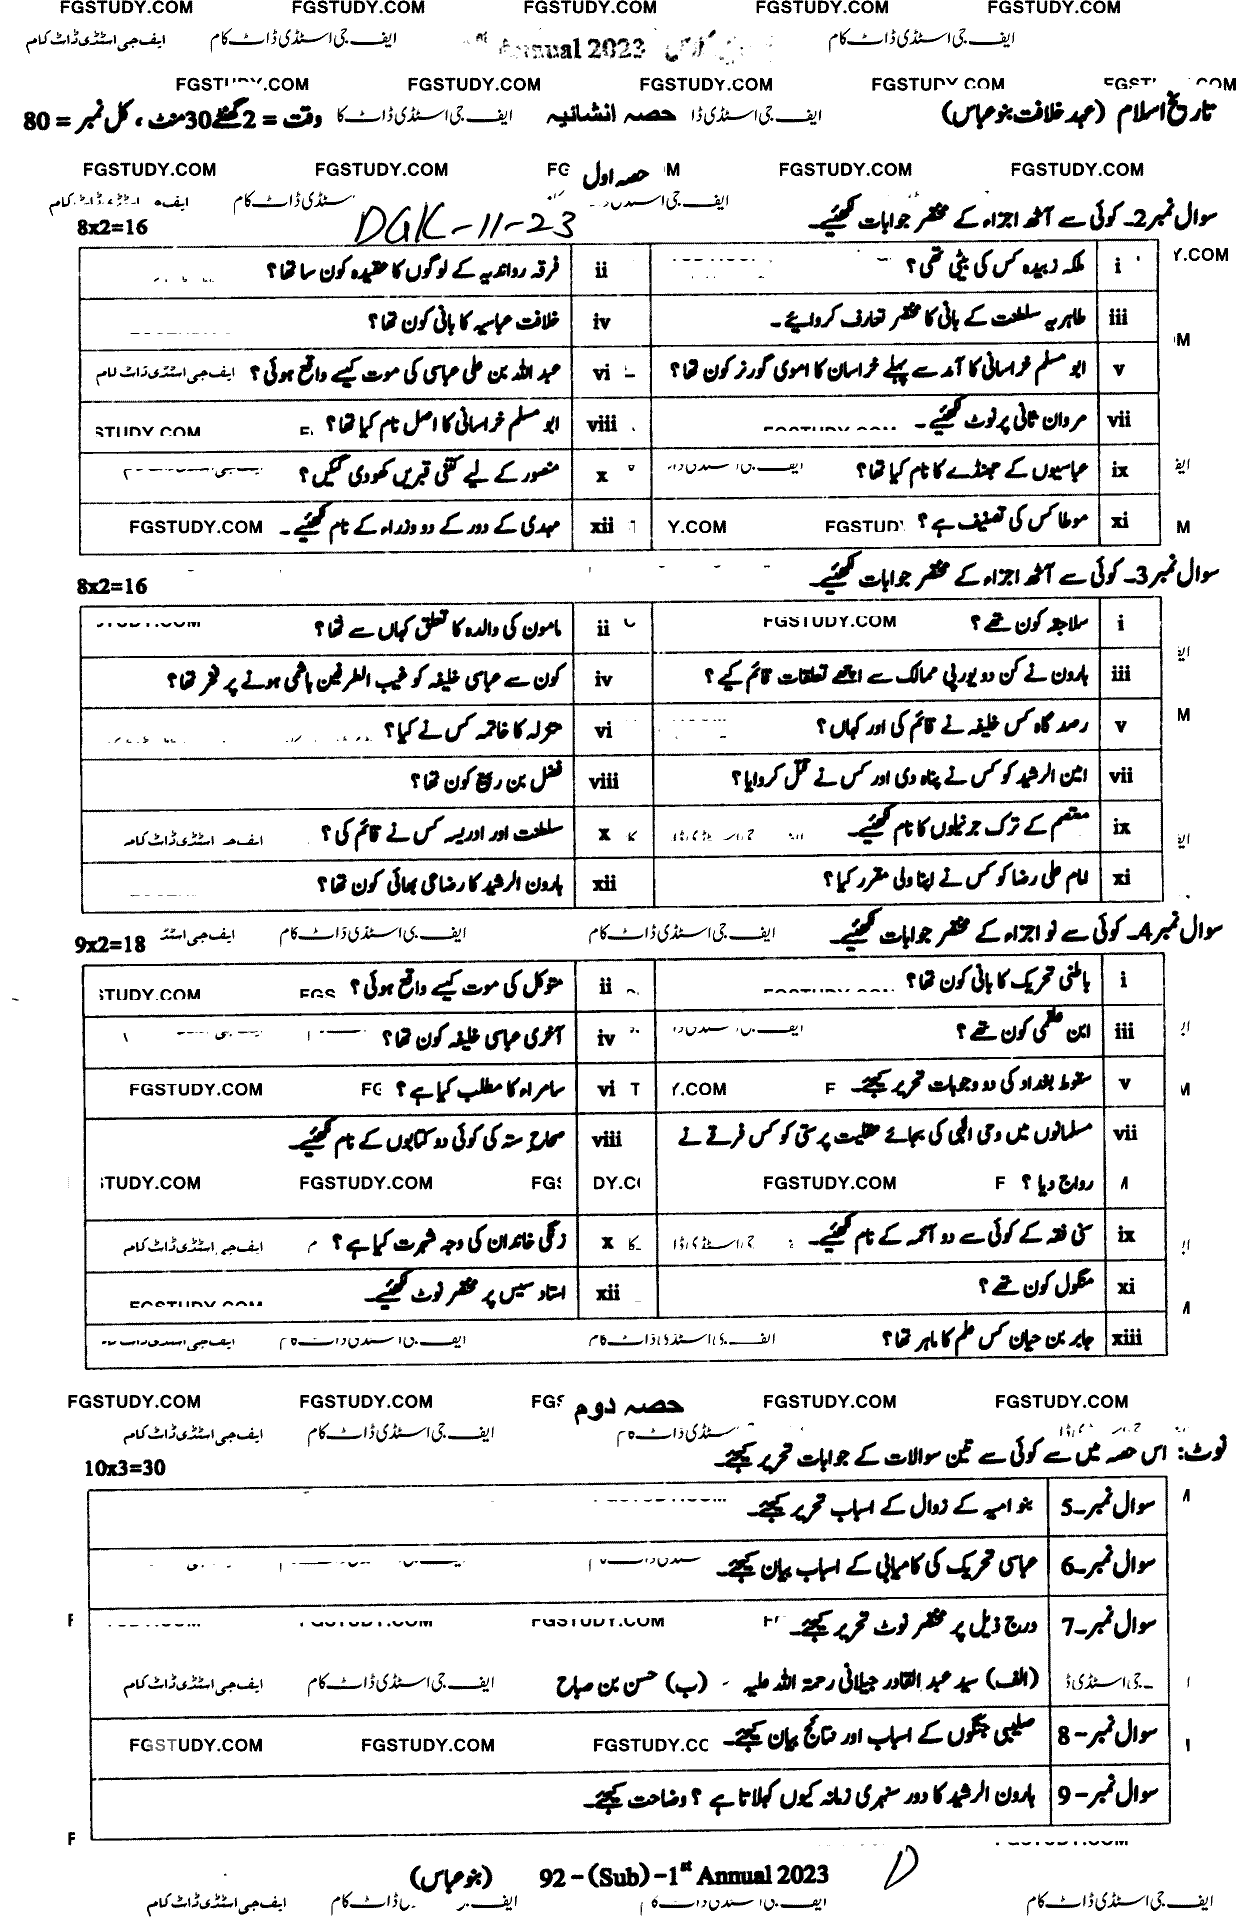 FGSTUDY.COM FGSTUDY.COM FGSTUDY.COM FGSTUDY.COM FGSTUDY.COM
ایف جی اسٹڈی ڈاٹ کام ایف جی اسٹڈی ڈاٹ کام Annual 2023 ایف جی اسٹڈی ڈاٹ کام
FGSTUDY.COM FGSTUDY.COM FGSTUDY.COM FGSTUDY.COM
تاریخ اسلام (عہد خلافت بنو عباس) حصہ انشائیہ وقت = 2 گھنٹے 30 منٹ ، کل نمبر = 80
FGSTUDY.COM FGSTUDY.COM حصہ اول FGSTUDY.COM FGSTUDY.COM
سوال نمبر 2۔ کوئی سے آٹھ اجزاء کے مختصر جوابات لکھئیے۔ 8x2=16
DGK-11-23
i ملکہ زبیدہ کس کی بیٹی تھی؟ ii فرقہ رواندیہ کے لوگوں کا عقیدہ کون سا تھا؟
iii طاہریہ سلطنت کے بانی کا مختصر تعارف کروایئے۔ iv خلافت عباسیہ کا بانی کون تھا؟
v ابو مسلم خراسانی کا آمد سے پہلے خراسان کا اموی گورنر کون تھا؟ vi عبد اللہ بن علی عباسی کی موت کیسے واقع ہوئی؟
vii مروان ثانی پر نوٹ لکھئیے۔ viii ابو مسلم خراسانی کا اصل نام کیا تھا؟
ix عباسیوں کے جھنڈے کا نام کیا تھا؟ x منصور کے لیے کتنی قبریں کھودی گئیں؟
xi موطا کس کی تصنیف ہے؟ xii مہدی کے دور کے دو وزراء کے نام لکھئیے۔
سوال نمبر 3۔ کوئی سے آٹھ اجزاء کے مختصر جوابات لکھئیے۔ 8x2=16
i سلاجقہ کون تھے؟ ii مامون کی والدہ کا تعلق کہاں سے تھا؟
iii ہارون نے کن دو یورپی ممالک سے اچھے تعلقات قائم کیے؟ iv کون سے عباسی خلیفہ کو نجیب الطرفین ہاشمی ہونے پر فخر تھا؟
v رصد گاہ کس خلیفہ نے قائم کی اور کہاں؟ vi معتزلہ کا خاتمہ کس نے کیا؟
vii امین الرشید کو کس نے پناہ دی اور کس نے قتل کروایا؟ viii فضل بن ربیع کون تھا؟
ix معتصم کے ترک جرنیلوں کا نام لکھئیے۔ x سلطنت اور ادریسہ کس نے قائم کی؟
xi امام علی رضا کو کس نے اپنا ولی مقرر کیا؟ xii ہارون الرشید کا رضاعی بھائی کون تھا؟
سوال نمبر 4۔ کوئی سے نو اجزاء کے مختصر جوابات لکھئیے۔ 9x2=18
i باطنی تحریک کا بانی کون تھا؟ ii متوکل کی موت کیسے واقع ہوئی؟
iii ابن علقمی کون تھے؟ iv آخری عباسی خلیفہ کون تھا؟
v سقوط بغداد کی دو وجوہات تحریر کیجئے۔ vi سامراء کا مطلب کیا ہے؟
vii مسلمانوں میں وحی الٰہی کی بجائے عقلیت پرستی کو کس فرقے نے viii صحاح ستہ کی کوئی دو کتابوں کے نام لکھئیے۔
رواج دیا؟ FGSTUDY.COM FGSTUDY.COM
ix سنی فقہ کے کوئی سے دو آئمہ کے نام لکھئیے۔ x زنگی خاندان کی وجہ شہرت کیا ہے؟
xi منگول کون تھے؟ xii استاد سیس پر مختصر نوٹ لکھئیے۔
xiii جابر بن حیان کس علم کا ماہر تھا؟
FGSTUDY.COM FGSTUDY.COM حصہ دوم FGSTUDY.COM FGSTUDY.COM
نوٹ: اس حصہ میں سے کوئی سے تین سوالات کے جوابات تحریر کیجئے۔ 10x3=30
سوال نمبر۔5 بنو امیہ کے زوال کے اسباب تحریر کیجئے۔
سوال نمبر۔6 عباسی تحریک کی کامیابی کے اسباب بیان کیجئے۔
سوال نمبر۔7 درج ذیل پر مختصر نوٹ تحریر کیجئے۔
(الف) سید عبد القادر جیلانی رحمۃ اللہ علیہ - (ب) حسن بن صباح
سوال نمبر-8 صلیبی جنگوں کے اسباب اور نتائج بیان کیجئے۔
سوال نمبر-9 ہارون الرشید کا دور سنہری زمانہ کیوں کہلاتا ہے؟ وضاحت کیجئے۔
92-(Sub)-1st Annual 2023 (بنو عباس)
ایف جی اسٹڈی ڈاٹ کام ایف جی اسٹڈی ڈاٹ کام